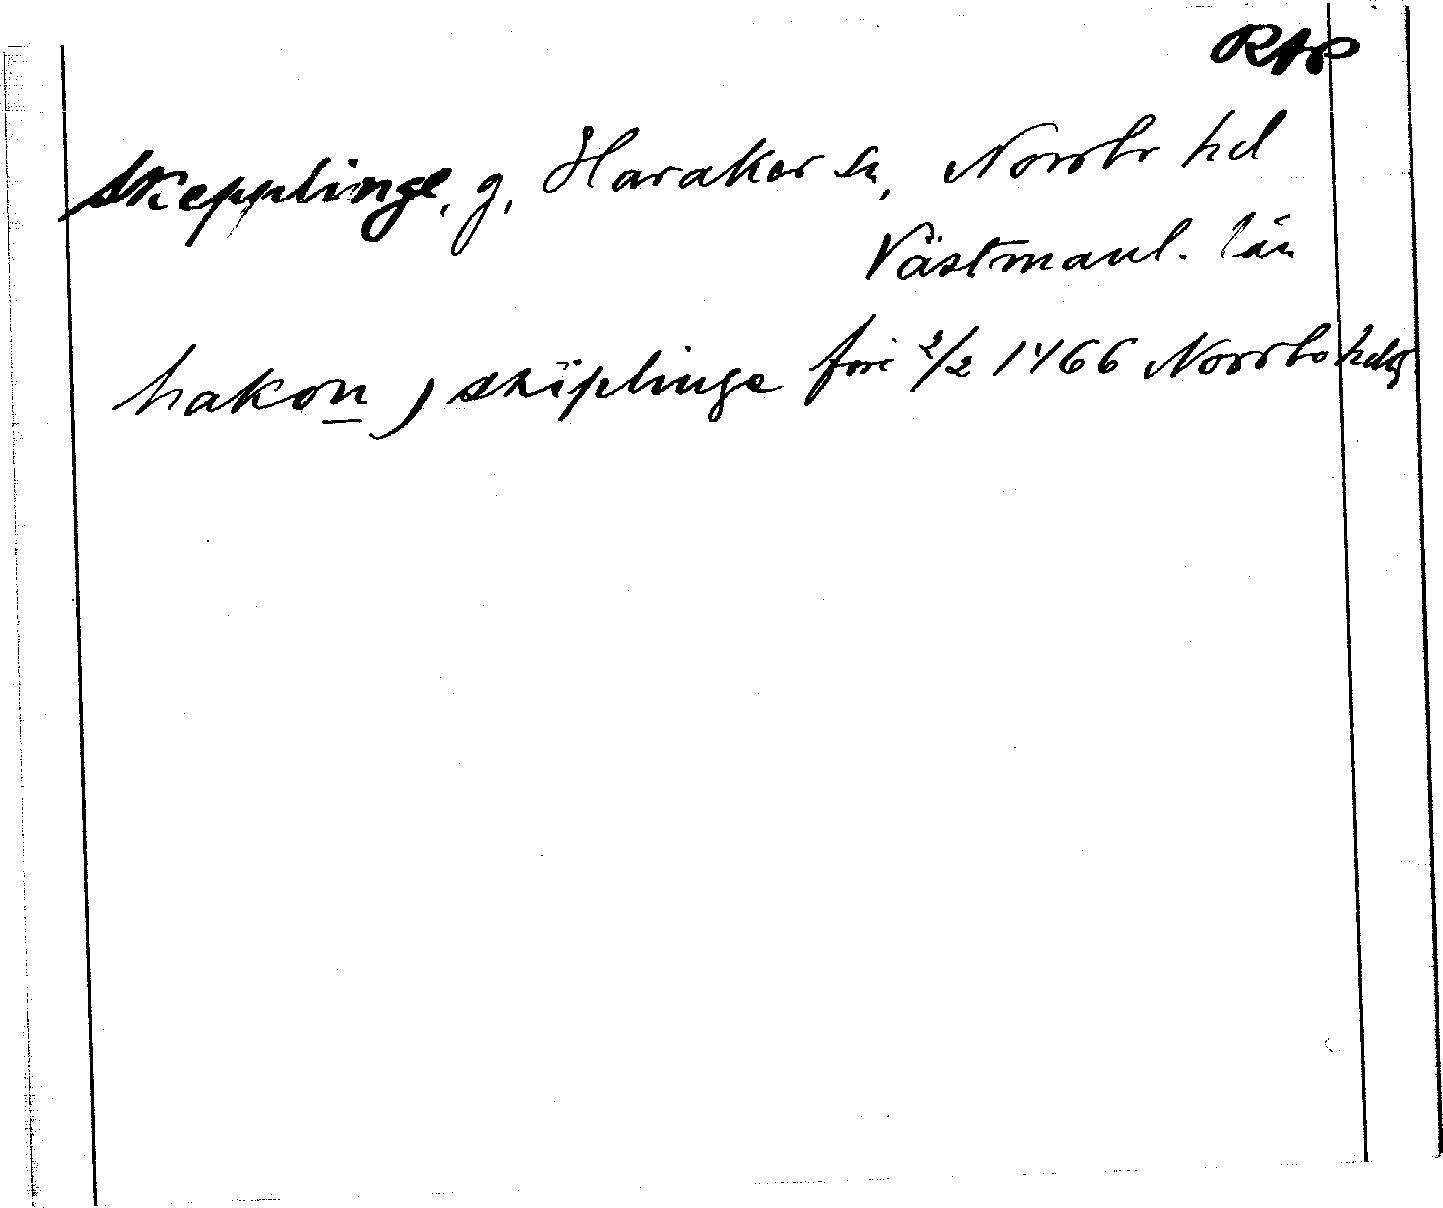 RAP
Skepplinge, g, Haraker sn, Norrbo hd
Västmanl. län
hakon j skiplinge före 2/2 1466 Norrbo hds